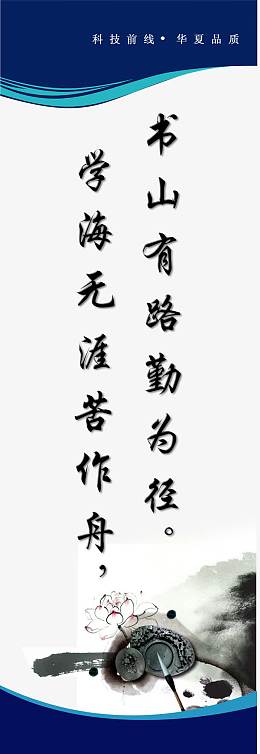 科技前线•华夏品质
书山有路勤为径。
学海无涯苦作舟，